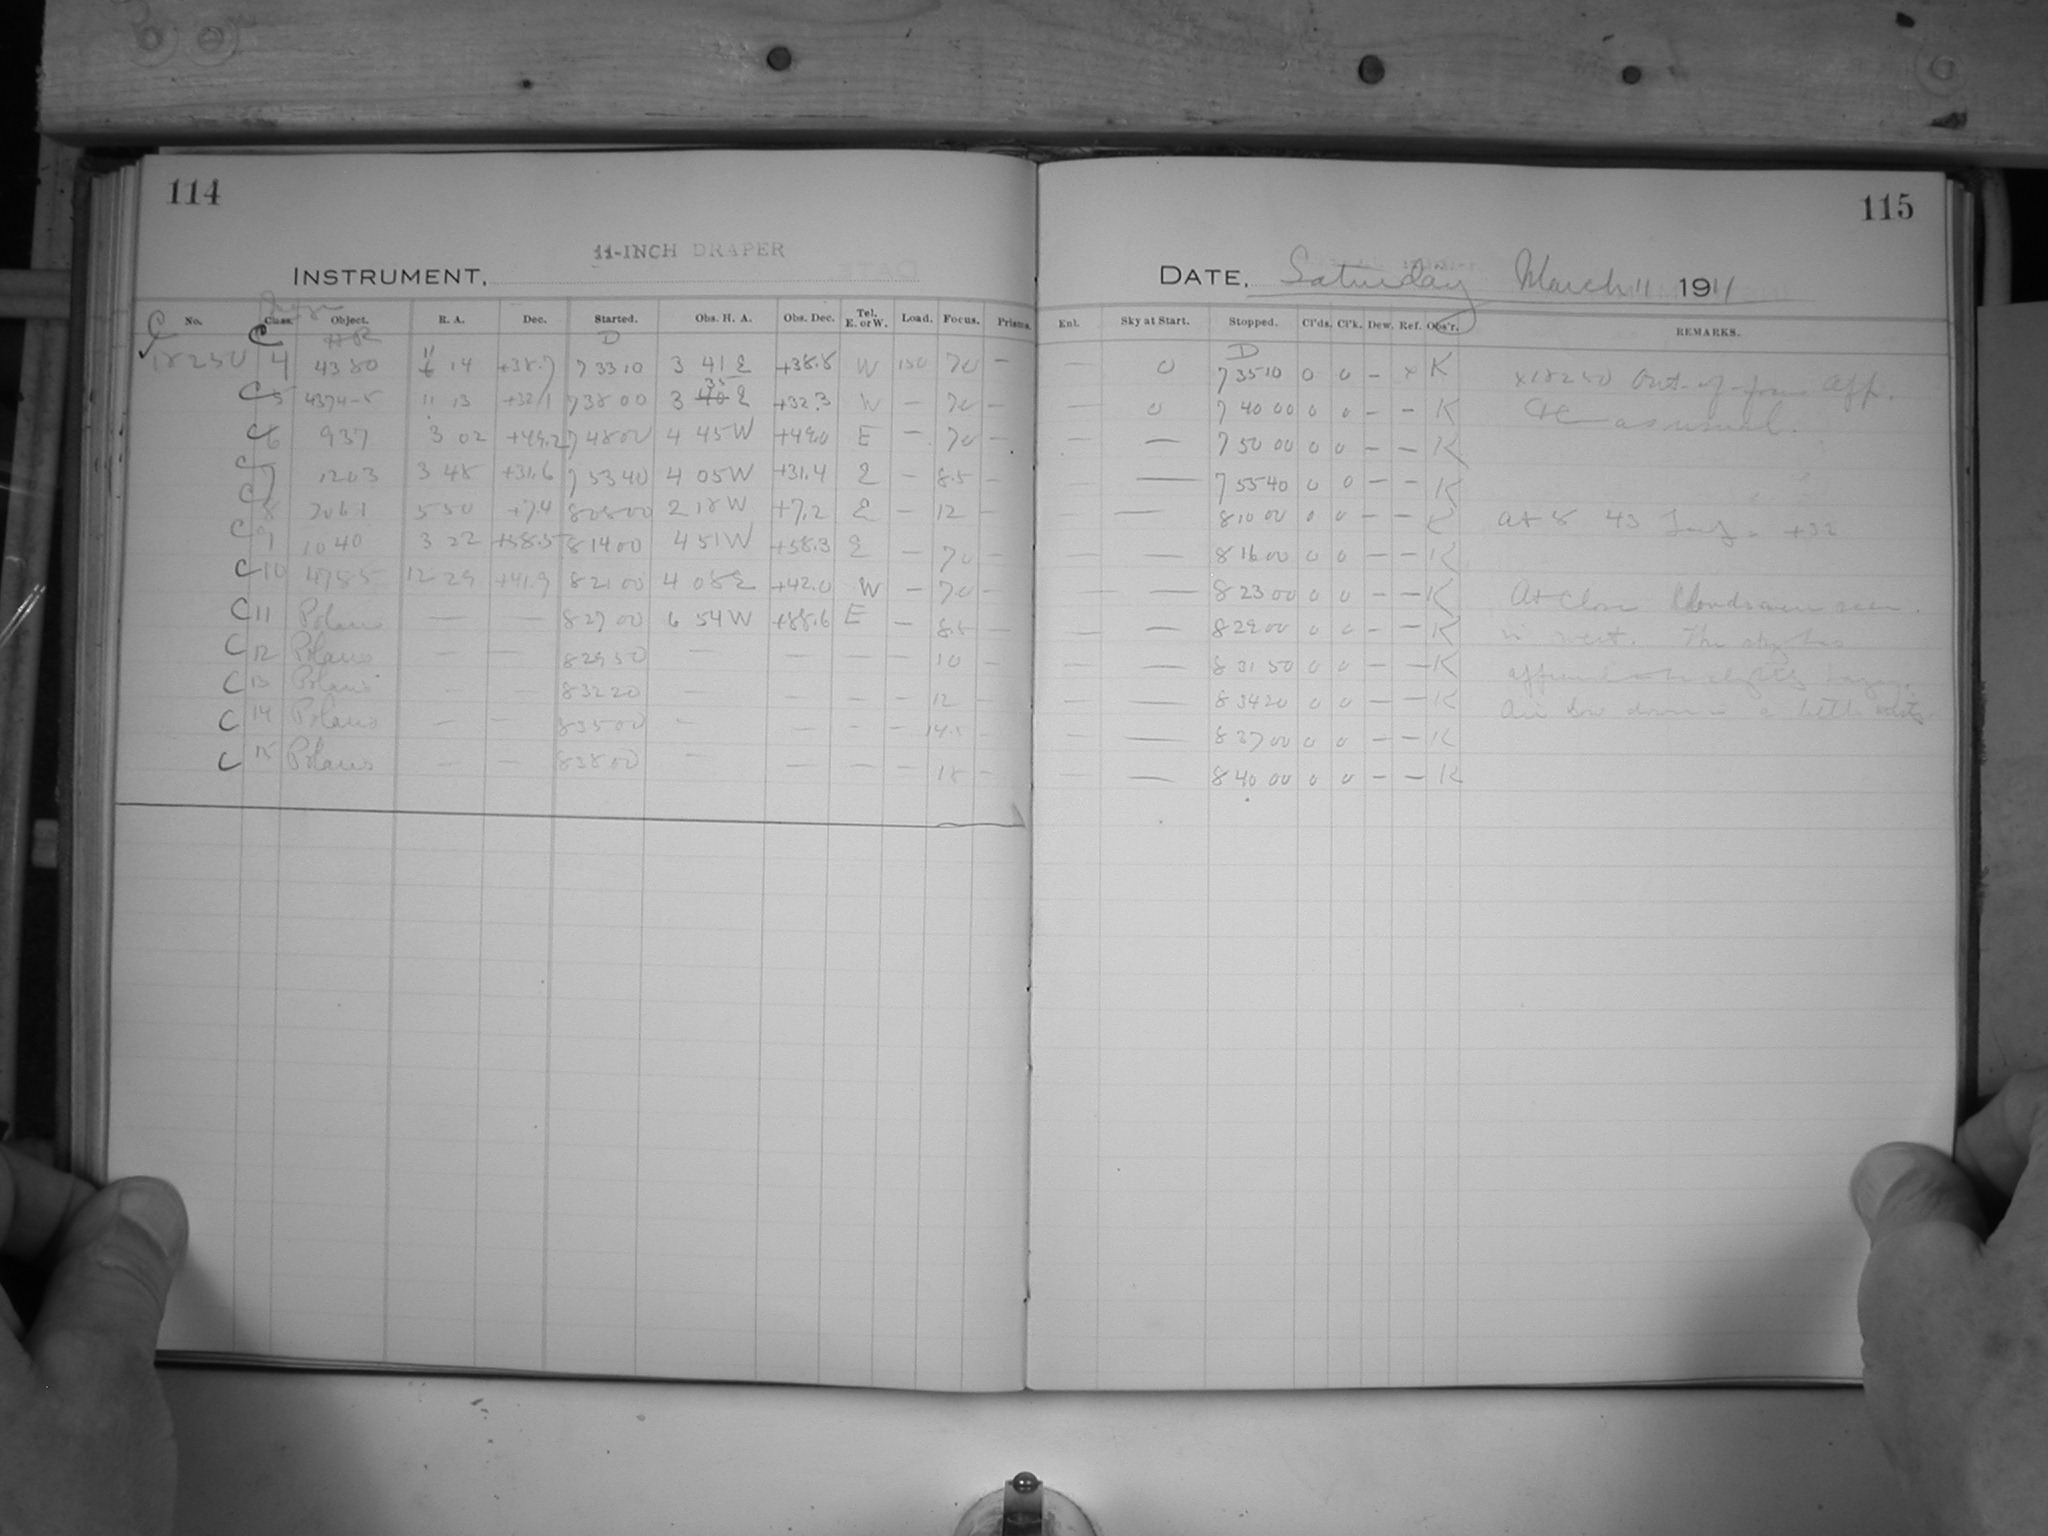 114
11-INCH DRAPER
INSTRUMENT,
C No. Class. Object. R. A. Dec. Started. Obs. H. A. Obs. Dec. Tel. E. or W. Load. Focus. Prisms.
C HR D
18250 4 4380 11 14 +38.7 7 33 10 3 41 E +38.8 W 150 70 —
C 5 4374-5 11 13 +32.1 7 38 00 3 35 E +32.3 W — 70 —
C 6 937 3 02 +49.2 7 48 00 4 45 W +49.0 E — 70 —
C 7 1203 3 48 +31.6 7 53 40 4 05 W +31.4 E — 8.5 —
C 8 2061 5 50 +7.4 8 08 00 2 18 W +7.2 E — 12 —
C 9 1040 3 22 +58.5 8 14 00 4 51 W +58.3 E — 70 —
C 10 4785 12 29 +41.9 8 21 00 4 08 E +42.0 W — 70 —
C 11 Polaris — — 8 27 00 6 54 W +88.6 E — 8.5 —
C 12 Polaris — — 8 29 50 — — — — 10 —
C 13 Polaris — — 8 32 20 — — — — 12 —
C 14 Polaris — — 8 35 00 — — — — 14.5 —
C 15 Polaris — — 8 38 00 — — — — 18 —
115
DATE, Saturday March 11 1911
Ent. Sky at Start. Stopped. Cl'ds. Cl'k. Dew. Ref. Obs'r. REMARKS.
D
— 0 7 35 10 0 0 — x K x18250 Out-of-focus App.
— 0 7 40 00 0 0 — — K as usual.
— — 7 50 00 0 0 — — K
— — 7 55 40 0 0 — — K
— — 8 10 00 0 0 — — K At 8 43 +32
— — 8 16 00 0 0 — — K
— — 8 23 00 0 0 — — K At close clouds were seen
— — 8 29 00 0 0 — — K in west. The sky has
— — 8 31 50 0 0 — — K appeared slightly hazy.
— — 8 34 20 0 0 — — K Air low down is a little
— — 8 37 00 0 0 — — K
— — 8 40 00 0 0 — — K